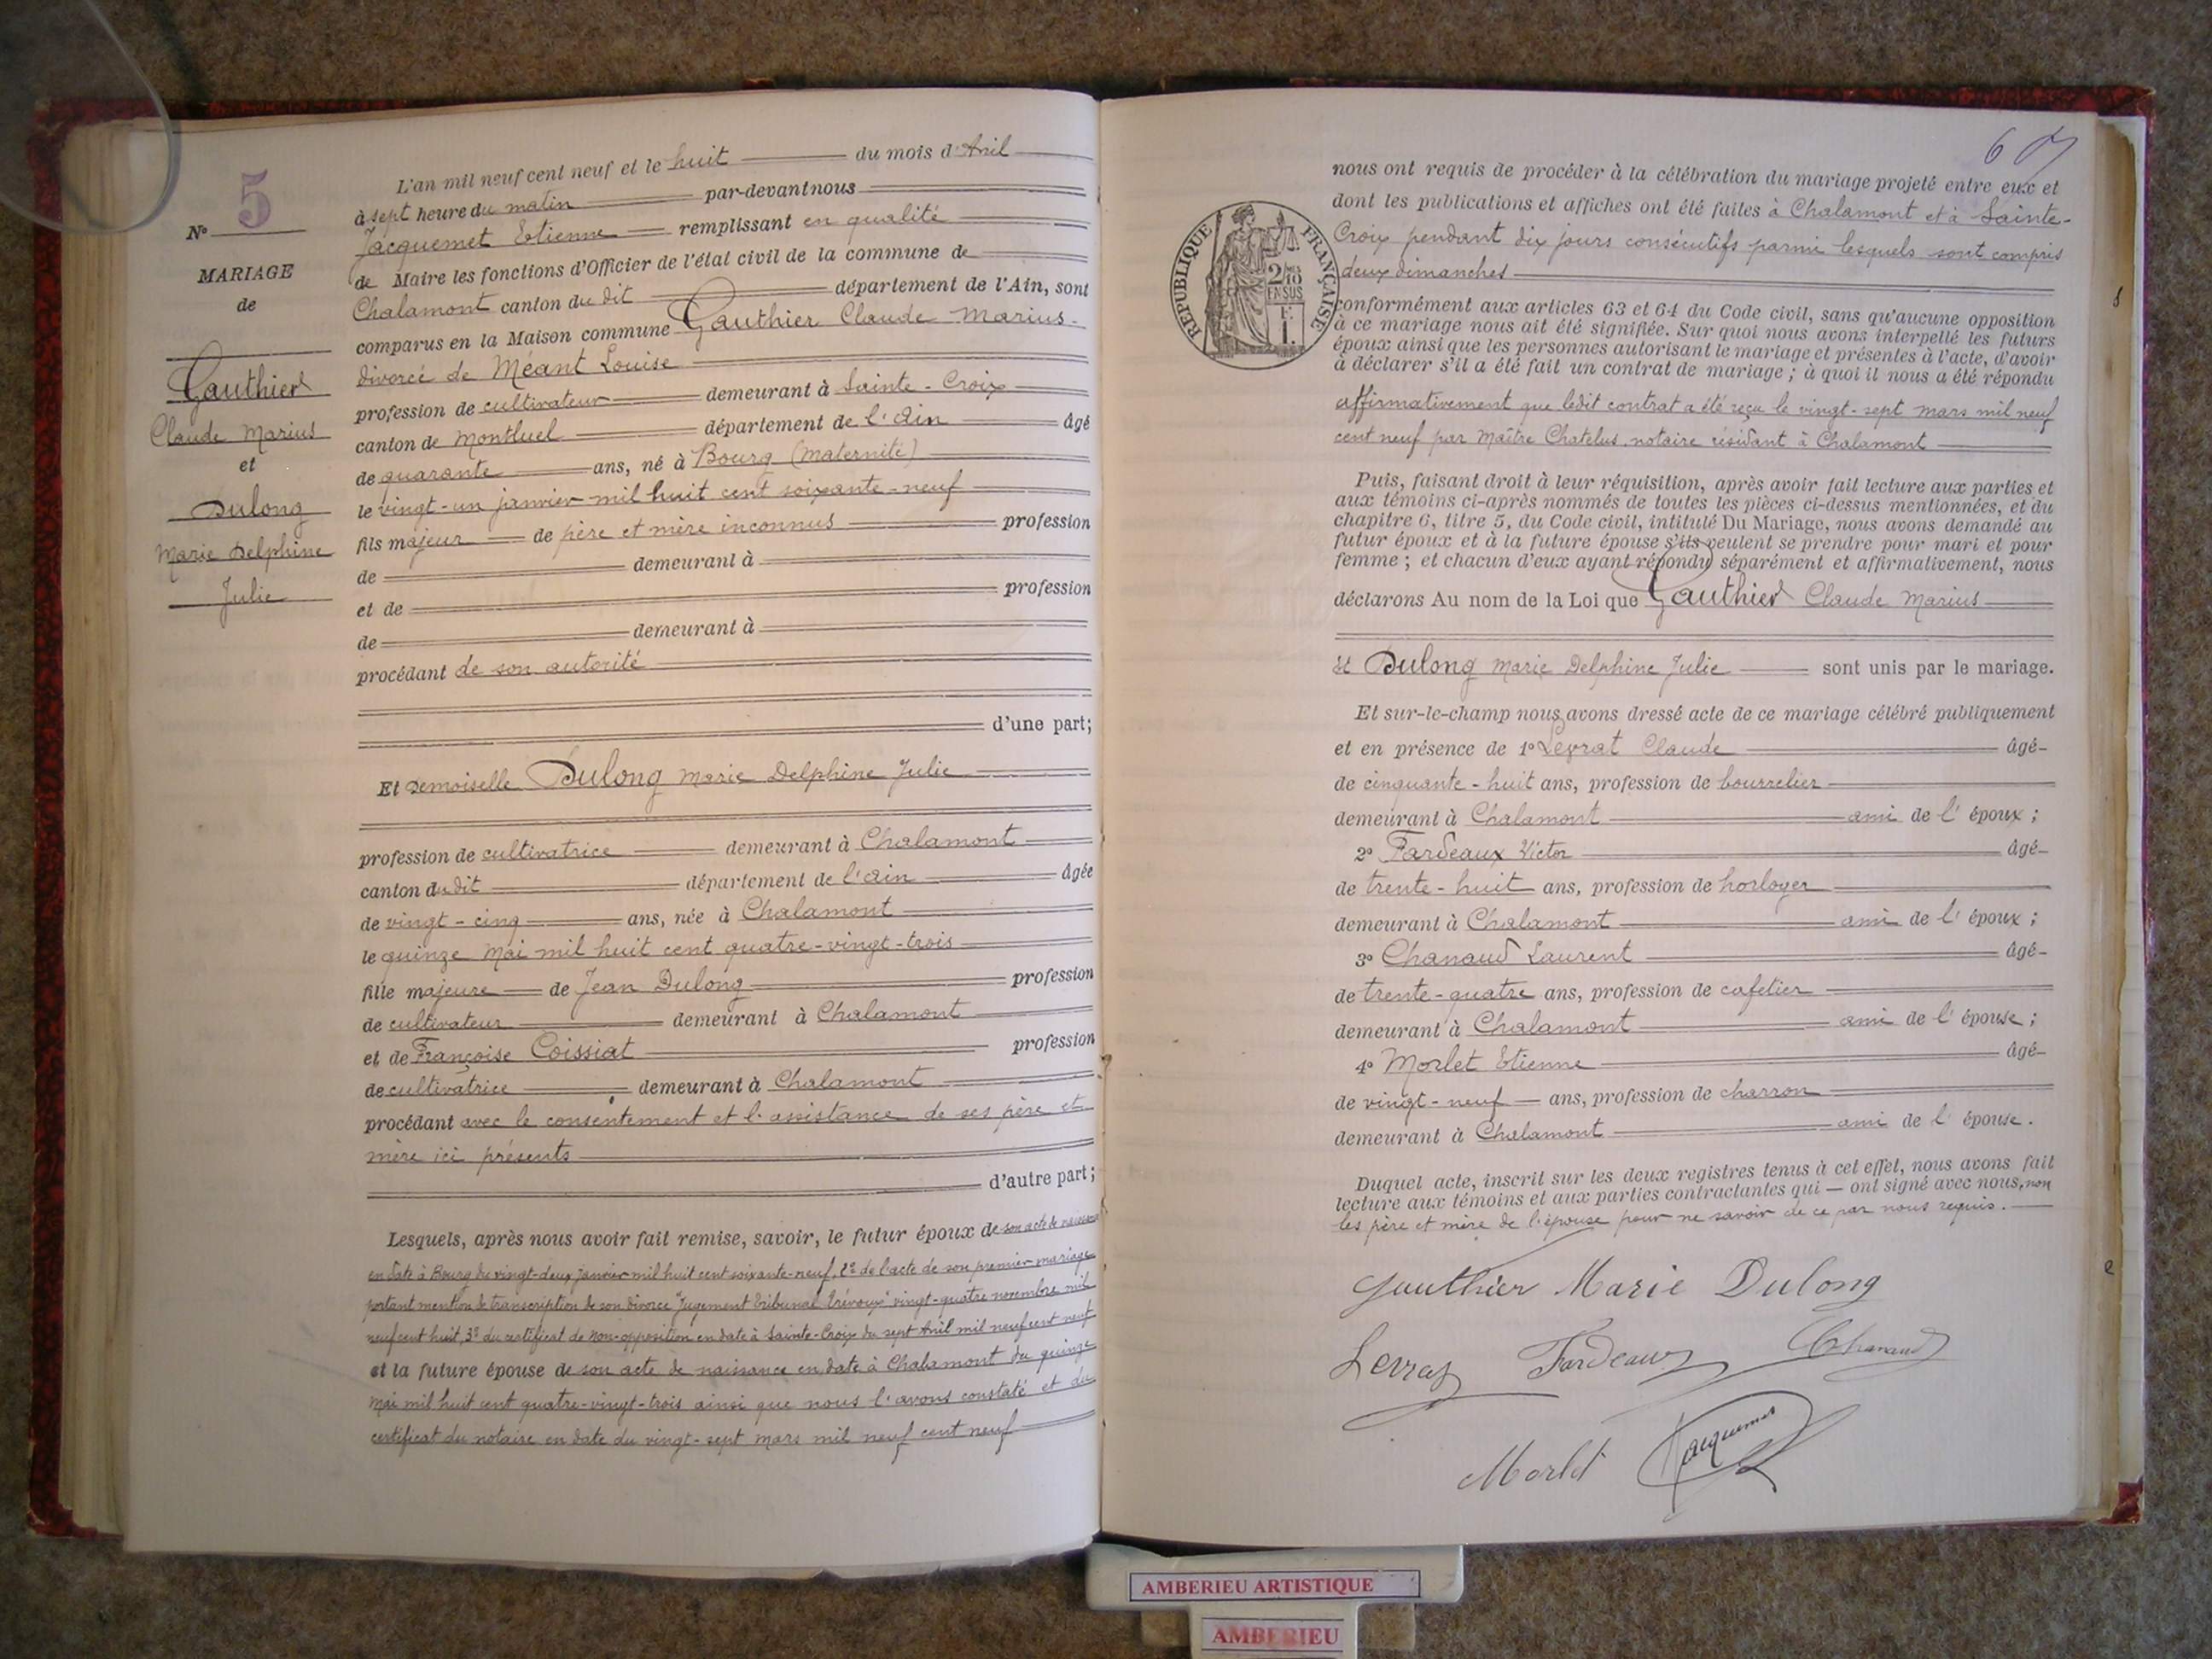 N° 5
MARIAGE
de
Gauthier
Claude Marius
et
Dulong
Marie Delphine
Julie
L'an mil neuf cent neuf et le huit du mois d'Avril
à sept heure du matin par-devant nous
Jacquemet Etienne remplissant en qualité
de Maire les fonctions d'Officier de l'état civil de la commune de
Chalamont canton du dit département de l'Ain, sont
comparus en la Maison commune Gauthier Claude Marius
divorcé de Méant Louise
profession de cultivateur demeurant à Sainte-Croix
canton de Montluel département de l'Ain âgé
de quarante ans, né à Bourg (Maternité)
le vingt-un janvier mil huit cent soixante-neuf
fils majeur de père et mère inconnus profession
de demeurant à
et de profession
de demeurant à
procédant de son autorité
d'une part;
Et Demoiselle Dulong Marie Delphine Julie
profession de cultivatrice demeurant à Chalamont
canton du dit département de l'Ain âgée
de vingt-cinq ans, née à Chalamont
le quinze Mai mil huit cent quatre-vingt-trois
fille majeure de Jean Dulong profession
de cultivateur demeurant à Chalamont
et de Françoise Coissiat profession
de cultivatrice demeurant à Chalamont
procédant avec le consentement et l'assistance de ses père et
mère ici présents
d'autre part;
Lesquels, après nous avoir fait remise, savoir, le futur époux de son acte de naissance
en date à Bourg du vingt-deux janvier mil huit cent soixante-neuf, 2° de l'acte de son premier mariage
portant mention de transcription de son divorce "Jugement Tribunal Trévoux" vingt-quatre novembre mil
neuf cent huit, 3° du certificat de non-opposition en date à Sainte-Croix du sept Avril mil neuf cent neuf
et la future épouse de son acte de naissance en date à Chalamont du quinze
Mai mil huit cent quatre-vingt-trois ainsi que nous l'avons constaté et du
certificat du notaire en date du vingt-sept mars mil neuf cent neuf
67
RÉPUBLIQUE FRANÇAISE
2/10
EN SUS
1 F.
nous ont requis de procéder à la célébration du mariage projeté entre eux et
dont les publications et affiches ont été faites à Chalamont et à Sainte-
Croix pendant dix jours consécutifs parmi lesquels sont compris
deux dimanches
conformément aux articles 63 et 64 du Code civil, sans qu'aucune opposition
à ce mariage nous ait été signifiée. Sur quoi nous avons interpellé les futurs
époux ainsi que les personnes autorisant le mariage et présentes à l'acte, d'avoir
à déclarer s'il a été fait un contrat de mariage ; à quoi il nous a été répondu
affirmativement que ledit contrat a été reçu le vingt-sept mars mil neuf
cent neuf par Maître Chatelus, notaire résidant à Chalamont
Puis, faisant droit à leur réquisition, après avoir fait lecture aux parties et
aux témoins ci-après nommés de toutes les pièces ci-dessus mentionnées, et du
chapitre 6, titre 5, du Code civil, intitulé Du Mariage, nous avons demandé au
futur époux et à la future épouse s'ils veulent se prendre pour mari et pour
femme ; et chacun d'eux ayant répondu séparément et affirmativement, nous
déclarons Au nom de la Loi que Gauthier Claude Marius
et Dulong Marie Delphine Julie sont unis par le mariage.
Et sur-le-champ nous avons dressé acte de ce mariage célébré publiquement
et en présence de 1° Levrat Claude âgé
de cinquante-huit ans, profession de bourrelier
demeurant à Chalamont ami de l'époux ;
2° Fardeaux Victor âgé
de trente-huit ans, profession de horloger
demeurant à Chalamont ami de l'époux ;
3° Chanaud Laurent âgé
de trente-quatre ans, profession de cafetier
demeurant à Chalamont ami de l'épouse ;
4° Morlet Etienne âgé
de vingt-neuf ans, profession de charron
demeurant à Chalamont ami de l'épouse.
Duquel acte, inscrit sur les deux registres tenus à cet effet, nous avons fait
lecture aux témoins et aux parties contractantes qui ont signé avec nous, non
les père et mère de l'épouse pour ne savoir de ce par nous requis.
Gauthier Marie Dulong
Levrat Fardeaux Chanaud
Morlet Jacquemet
AMBERIEU ARTISTIQUE
AMBERIEU